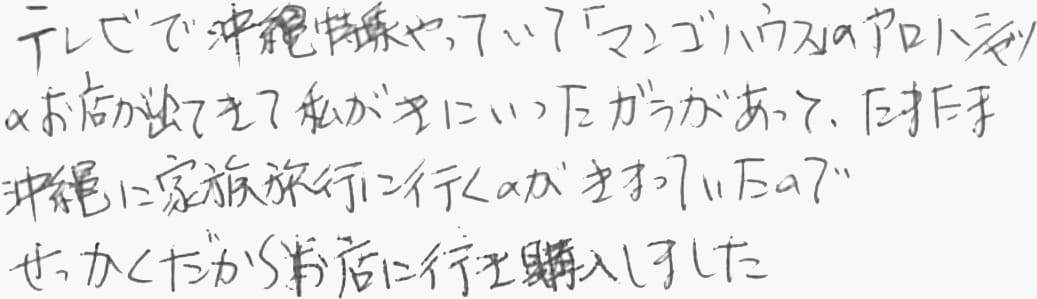 テレビで沖縄特集やっていて「マンゴハウス」のアロハシャツ
のお店が出てきて私がきにいったガラがあって、たまたま
沖縄に家族旅行に行くのがきまっていたので
せっかくだからお店に行き購入しました